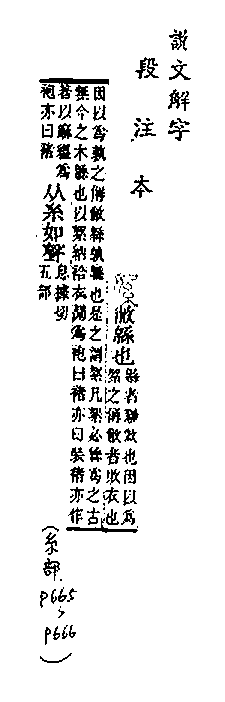 説文解字
段注本
絮敝緜也緜者聯𢺕也因以爲
絮之偁敝者敗衣也
因以爲孰之偁敝緜孰緜也是之謂絮凡絮必絲爲之古
無今之木緜也以絮納袷衣閒爲袍曰褚亦曰裝褚亦作
著以麻緼爲
袍亦曰褚
从糸如聲
息據切
五部
(糸部 P665、P666)